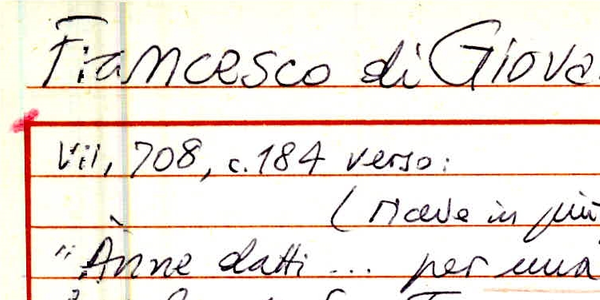 Francesco di Giova
VII, 708, c. 184 verso:
(riceve in più
"Ànne datti ... per una